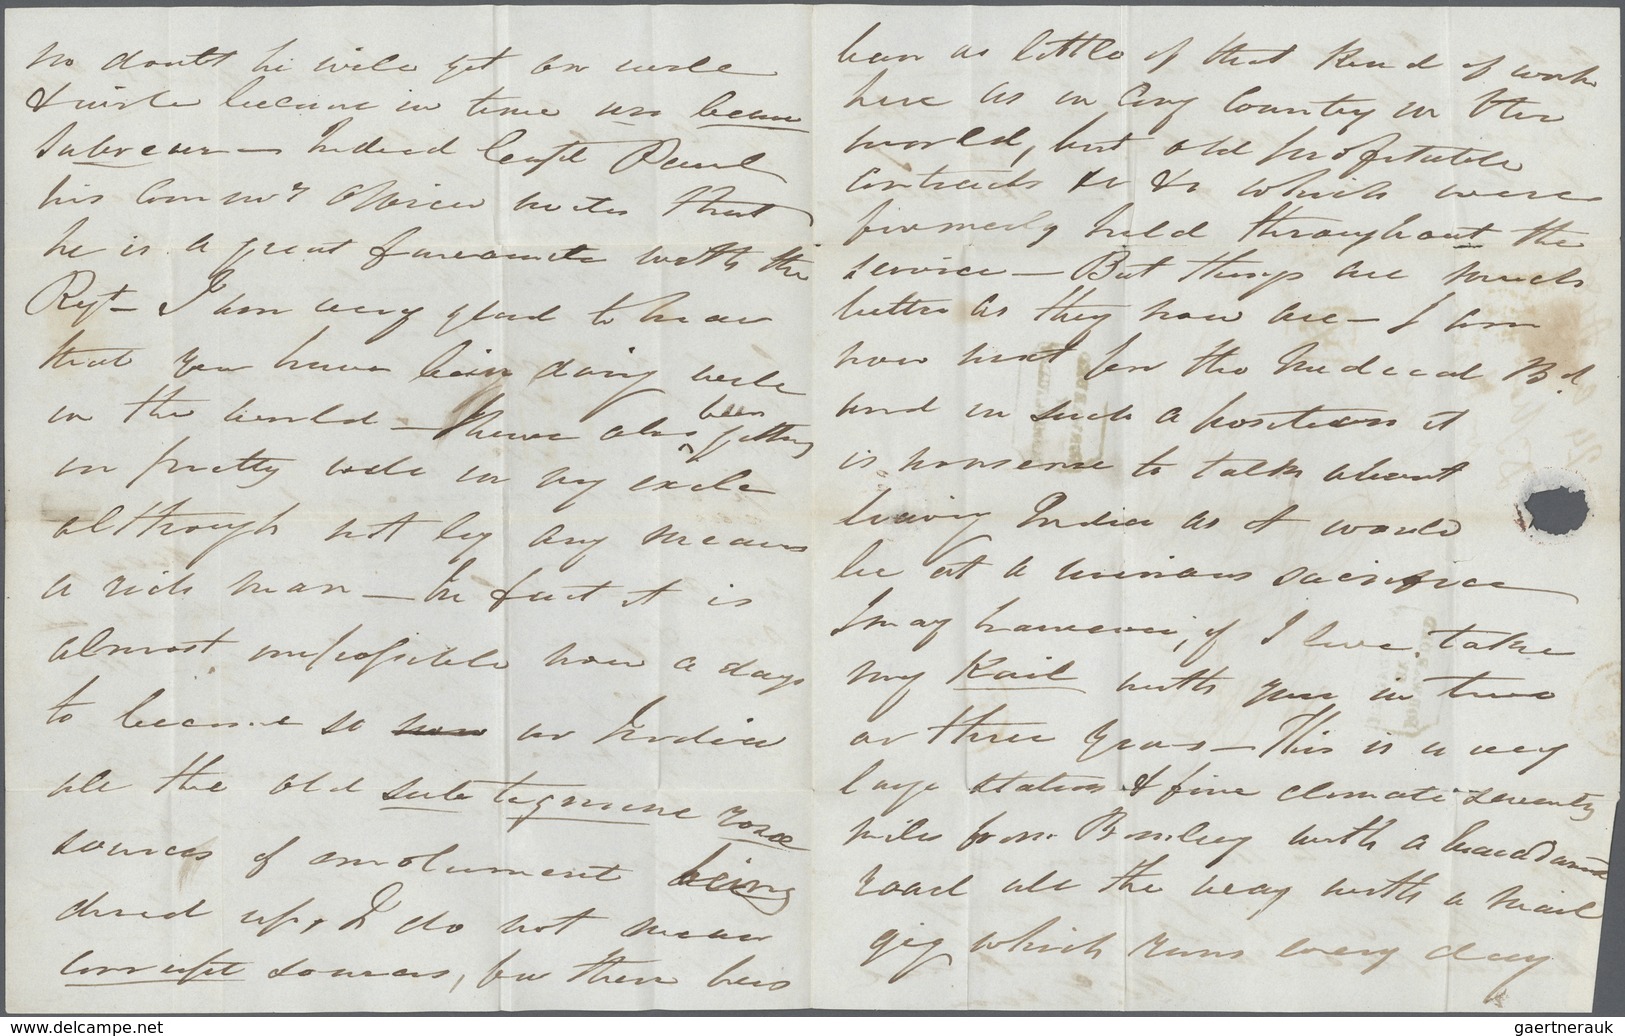 No doubt he will get on well
& wish become in time un beau
Sabreur — Indeed Capt Paul
his Comm'g Officer writes that
he is a great favourite with the
Regt — I am very glad to hear
that you have been doing well
in the world — I have also been getting
on pretty well in my exile
although not by any means
a rich man — In fact it is
almost impossible now a days
to become so in India
all the old sub tegmine rosae
sources of emolument being
dried up, I do not mean
corrupt sources, for there has
been as little of that kind of work
here as in any Country in the
world, but old profitable
contracts &c &c which were
formerly held throughout the
service — But things are much
better as they now are — I am
now next for the Medical Bd
and in such a position it
is nonsense to talk about
leaving India as it would
be at a ruinous sacrifice
I may however, if I live, take
my Kail with you in two
or three years — This is a very
large station & fine climate seventy
miles from Bombay with a macadamd
road all the way with a mail
gig which runs every day
gaertnerauk @ delcampe.net